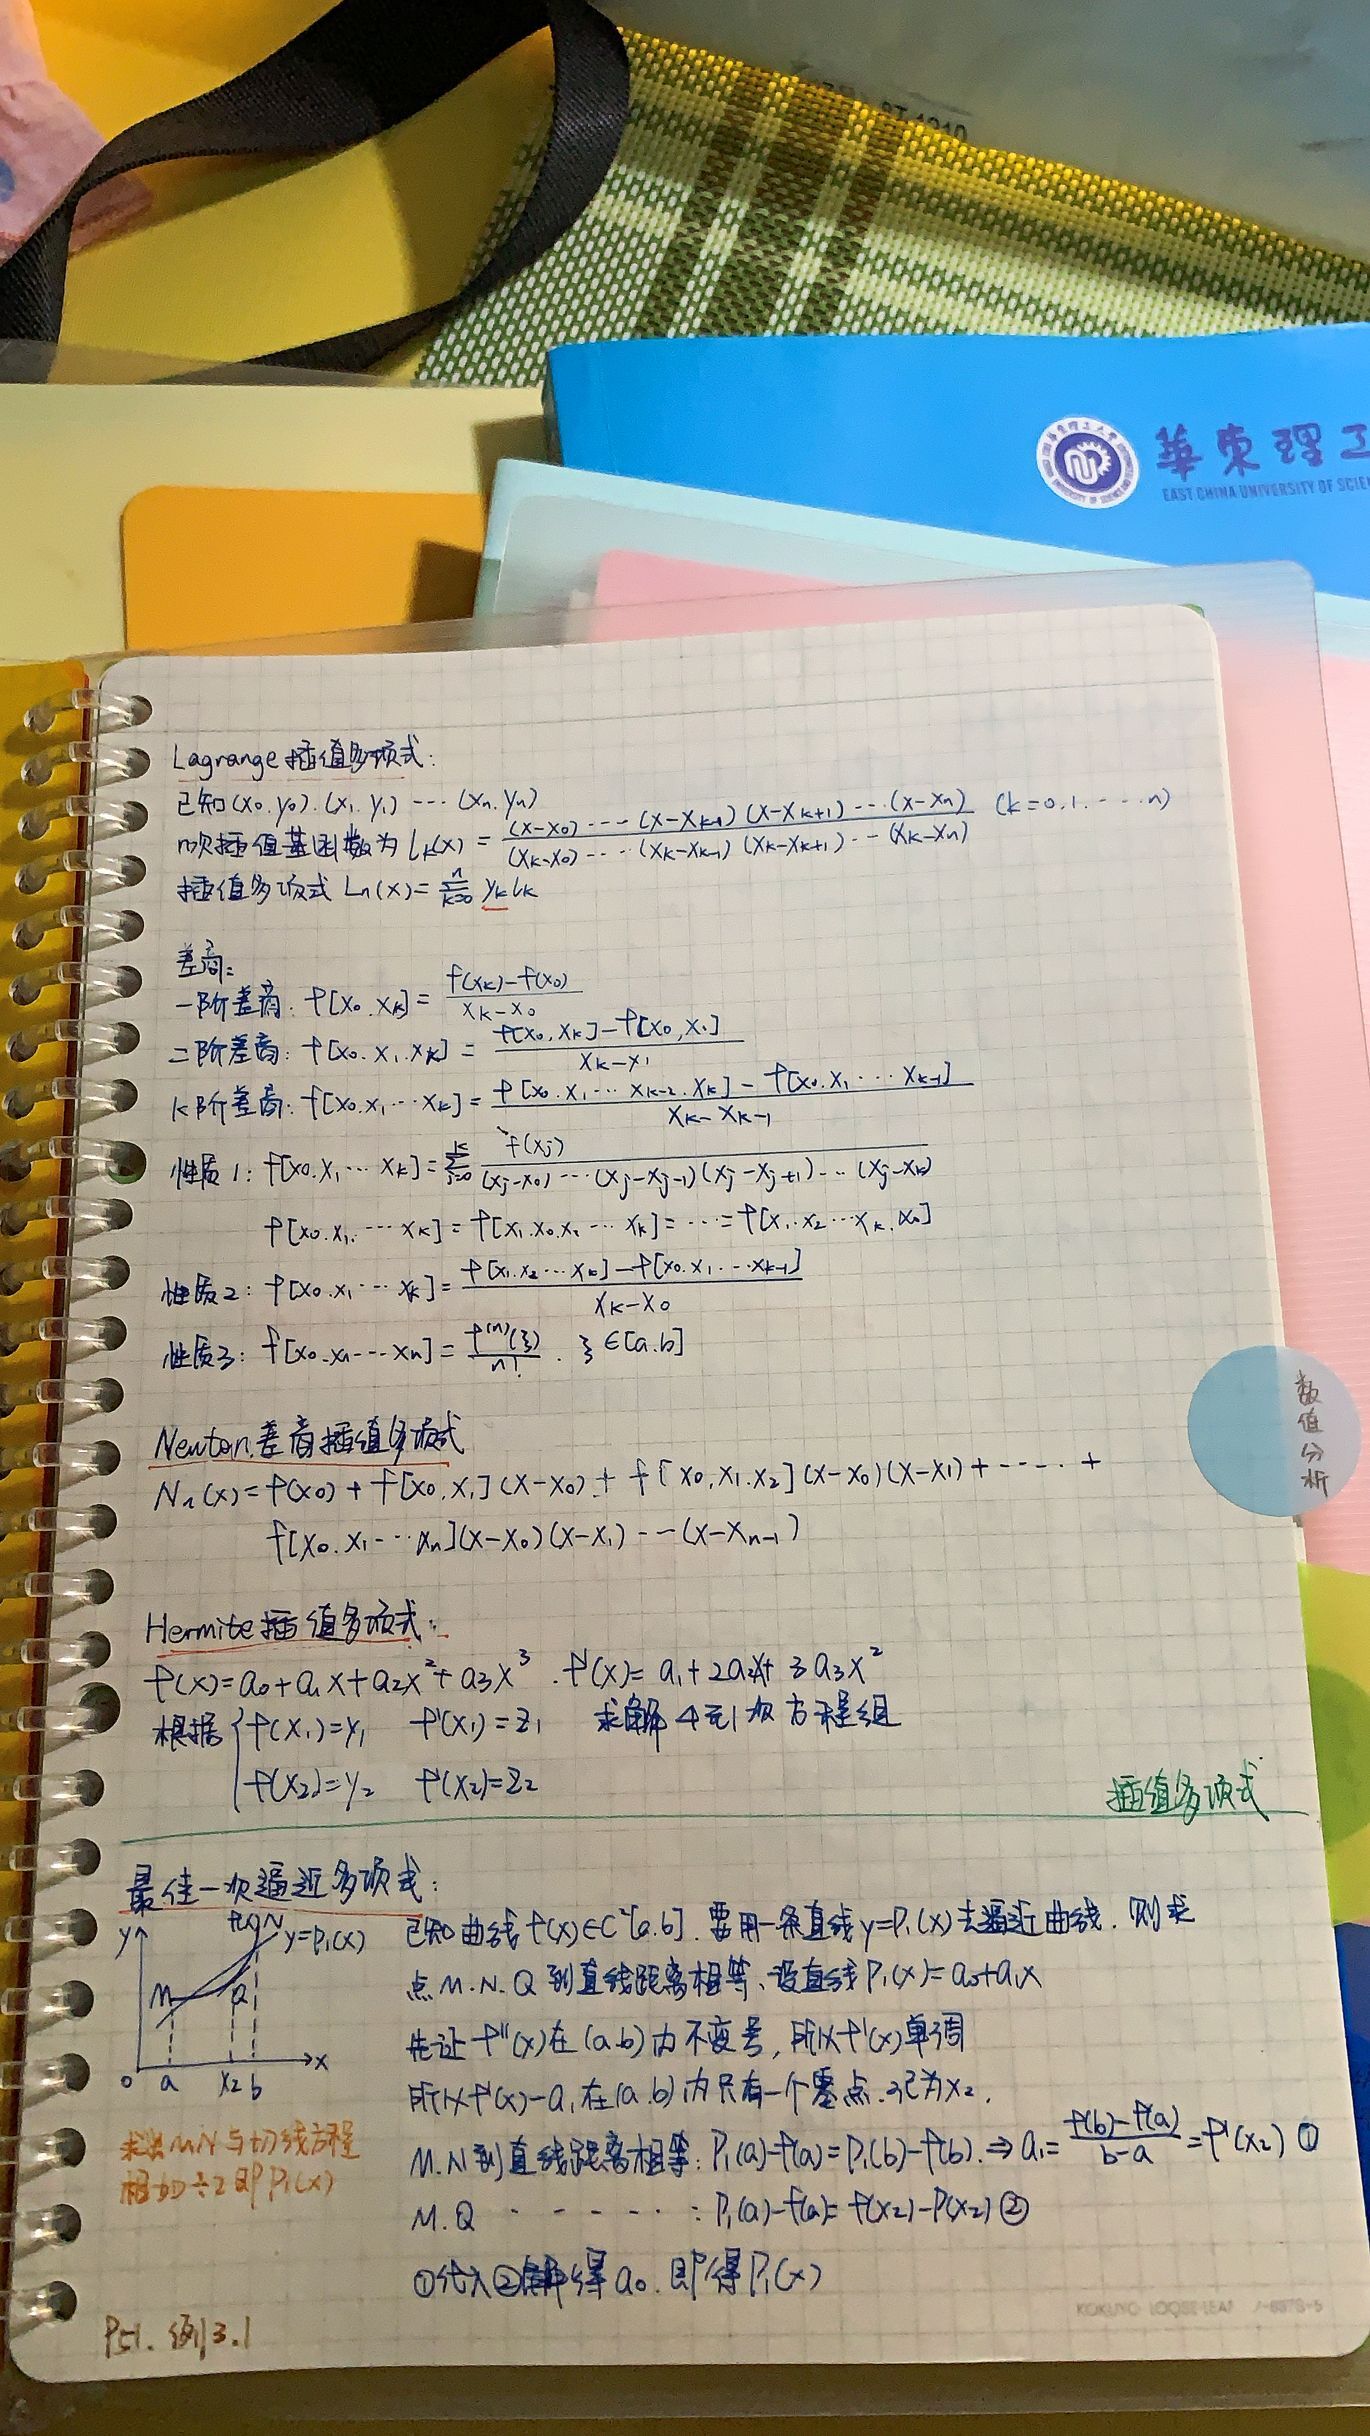 ST-1210
華東理工
EAST CHINA UNIVERSITY OF SCIEN
Lagrange 插值多项式:
已知(x₀,y₀).(x₁.y₁)---(xₙ.yₙ)
n次插值基函数为 lₖ(x) = (x-x₀)····(x-xₖ₋₁)(x-xₖ₊₁)···(x-xₙ) / (xₖ-x₀)····(xₖ-xₖ₋₁)(xₖ-xₖ₊₁)···(xₖ-xₙ) (k=0.1.····n)
插值多项式 Lₙ(x)= Σₖ₌₀ⁿ yₖlₖ
差商:
一阶差商: f[x₀.xₖ] = (f(xₖ)-f(x₀)) / (xₖ-x₀)
二阶差商: f[x₀.x₁.xₖ] = (f[x₀,xₖ]-f[x₀,x₁]) / (xₖ-x₁)
k阶差商: f[x₀.x₁···xₖ] = (f[x₀.x₁···xₖ₋₂.xₖ]-f[x₀.x₁···xₖ₋₁]) / (xₖ-xₖ₋₁)
性质1: f[x₀.x₁···xₖ] = Σⱼ₌₀ᵏ f(xⱼ) / (xⱼ-x₀)····(xⱼ-xⱼ₋₁)(xⱼ-xⱼ₊₁)···(xⱼ-xₖ)
f[x₀.x₁.···xₖ] = f[x₁.x₀.x₂···xₖ] = ···= f[x₁.x₂···xₖ.x₀]
性质2: f[x₀.x₁···xₖ] = (f[x₁.x₂···xₖ]-f[x₀.x₁···xₖ₋₁]) / (xₖ-x₀)
性质3: f[x₀.x₁···xₙ] = f⁽ⁿ⁾(ξ) / n! . ξ∈[a.b]
数值分析
Newton 差商插值多项式
Nₙ(x) = f(x₀) + f[x₀,x₁](x-x₀) + f[x₀,x₁.x₂](x-x₀)(x-x₁)+·····+
f[x₀.x₁···xₙ](x-x₀)(x-x₁)---(x-xₙ₋₁)
Hermite插值多项式:
f(x)=a₀+a₁x+a₂x²+a₃x³ . f'(x)= a₁+2a₂x+3a₃x²
根据 { f(x₁)=y₁ f'(x₁)=z₁ 求解4元1次方程组
f(x₂)=y₂ f'(x₂)=z₂
插值多项式
最佳一次逼近多项式:
y f(x) N y=P₁(x)
M Q
o a x₂ b x
已知曲线f(x)∈C²[a.b]. 要用一条直线y=P₁(x)去逼近曲线. 则求
点M.N.Q到直线距离相等、设直线P₁(x)=a₀+a₁x
先让f''(x)在(a.b)内不变号, 所以f'(x)单调
所以f'(x)-a₁在(a.b)内只有一个零点.记为x₂.
M.N到直线距离相等: P₁(a)-f(a)=P₁(b)-f(b).⇒a₁= (f(b)-f(a)) / (b-a) =f'(x₂) ①
M.Q ······: P₁(a)-f(a)= f(x₂)-P(x₂) ②
①代入②解得a₀.即得P₁(x)
求出MN与切线方程
相加÷2即P₁(x)
P51. 例3.1
KOKUYO LOOSE-LEAF